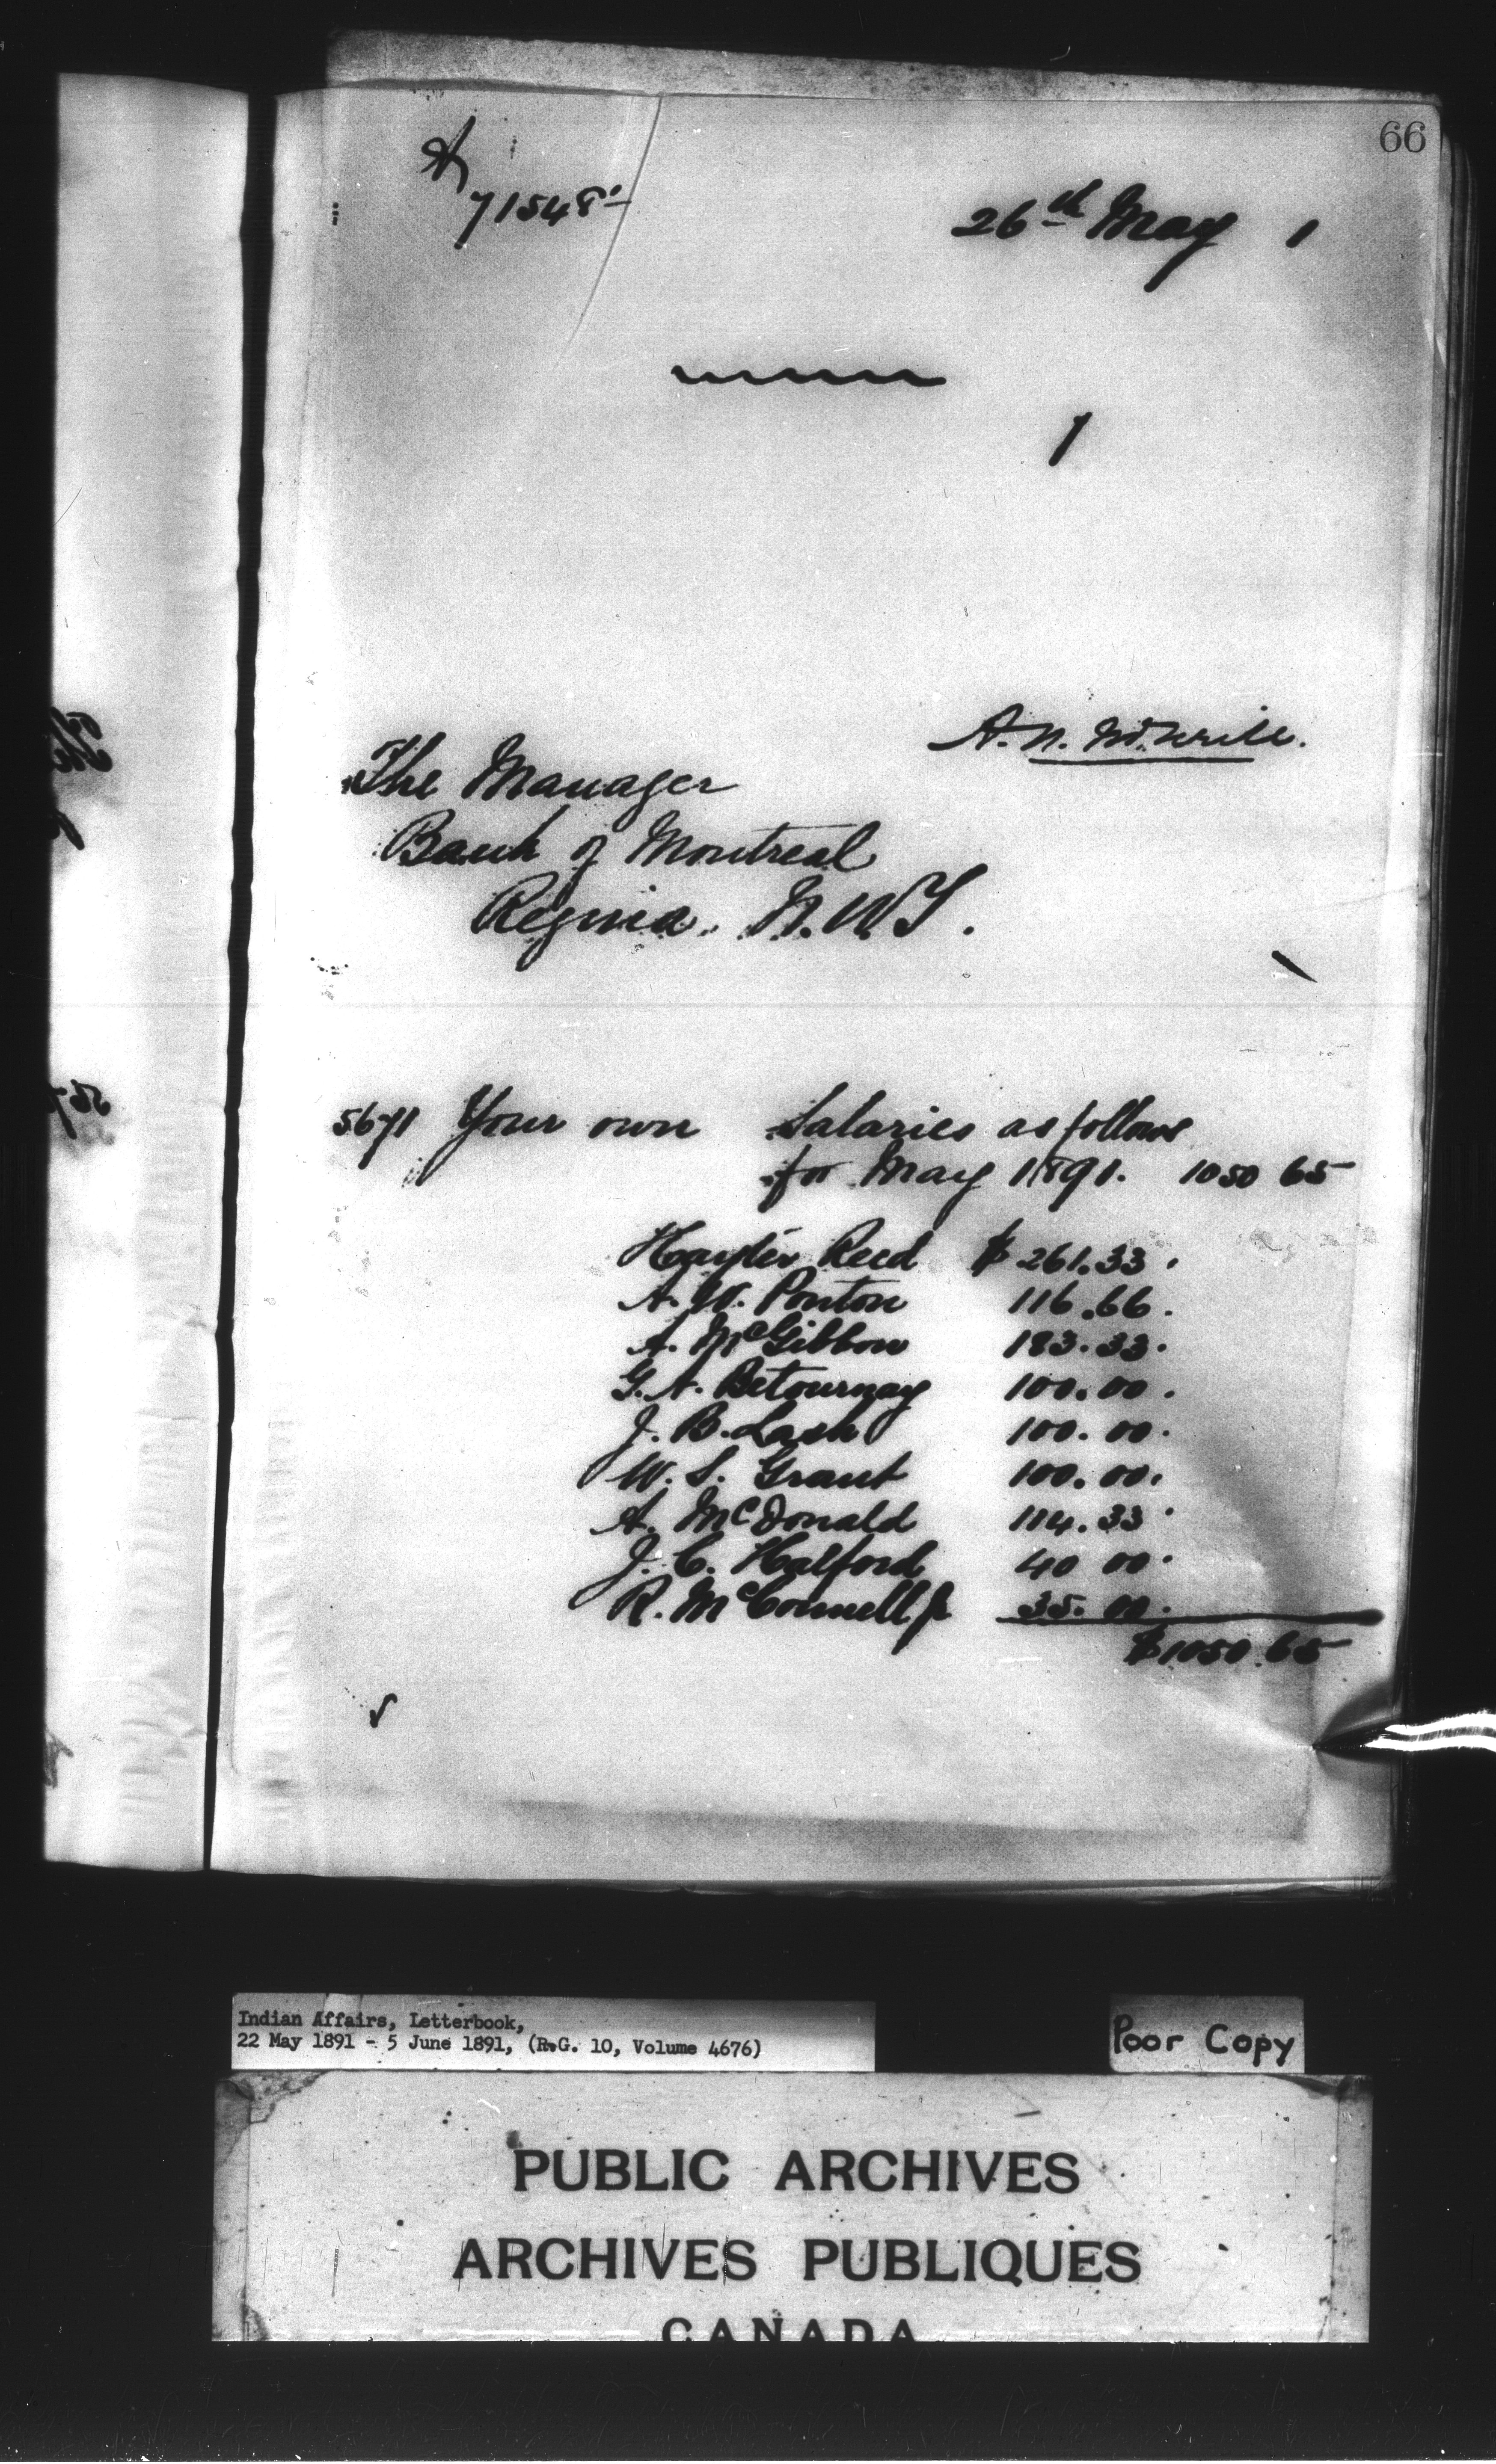 66
A
71548
26th May 1
1
A. N. McNeill.
The Manager
Bank of Montreal
Regina. N.W.T.
5671 Your own Salaries as follows
for May 1891. 1050 65
Hayter Reed $ 261.33.
A. W. Ponton 116.66.
A. McGibbon 183.33.
G. A. Betournay 100.00.
J. B. Lash 100.00.
W. S. Grant 100.00.
A. McDonald 114.33.
J. C. Halford 40 00.
R. McConnell Jr 35.00.
$1050.65
Indian Affairs, Letterbook,
22 May 1891 - 5 June 1891, (R.G. 10, Volume 4676)
Poor Copy
PUBLIC ARCHIVES
ARCHIVES PUBLIQUES
CANADA